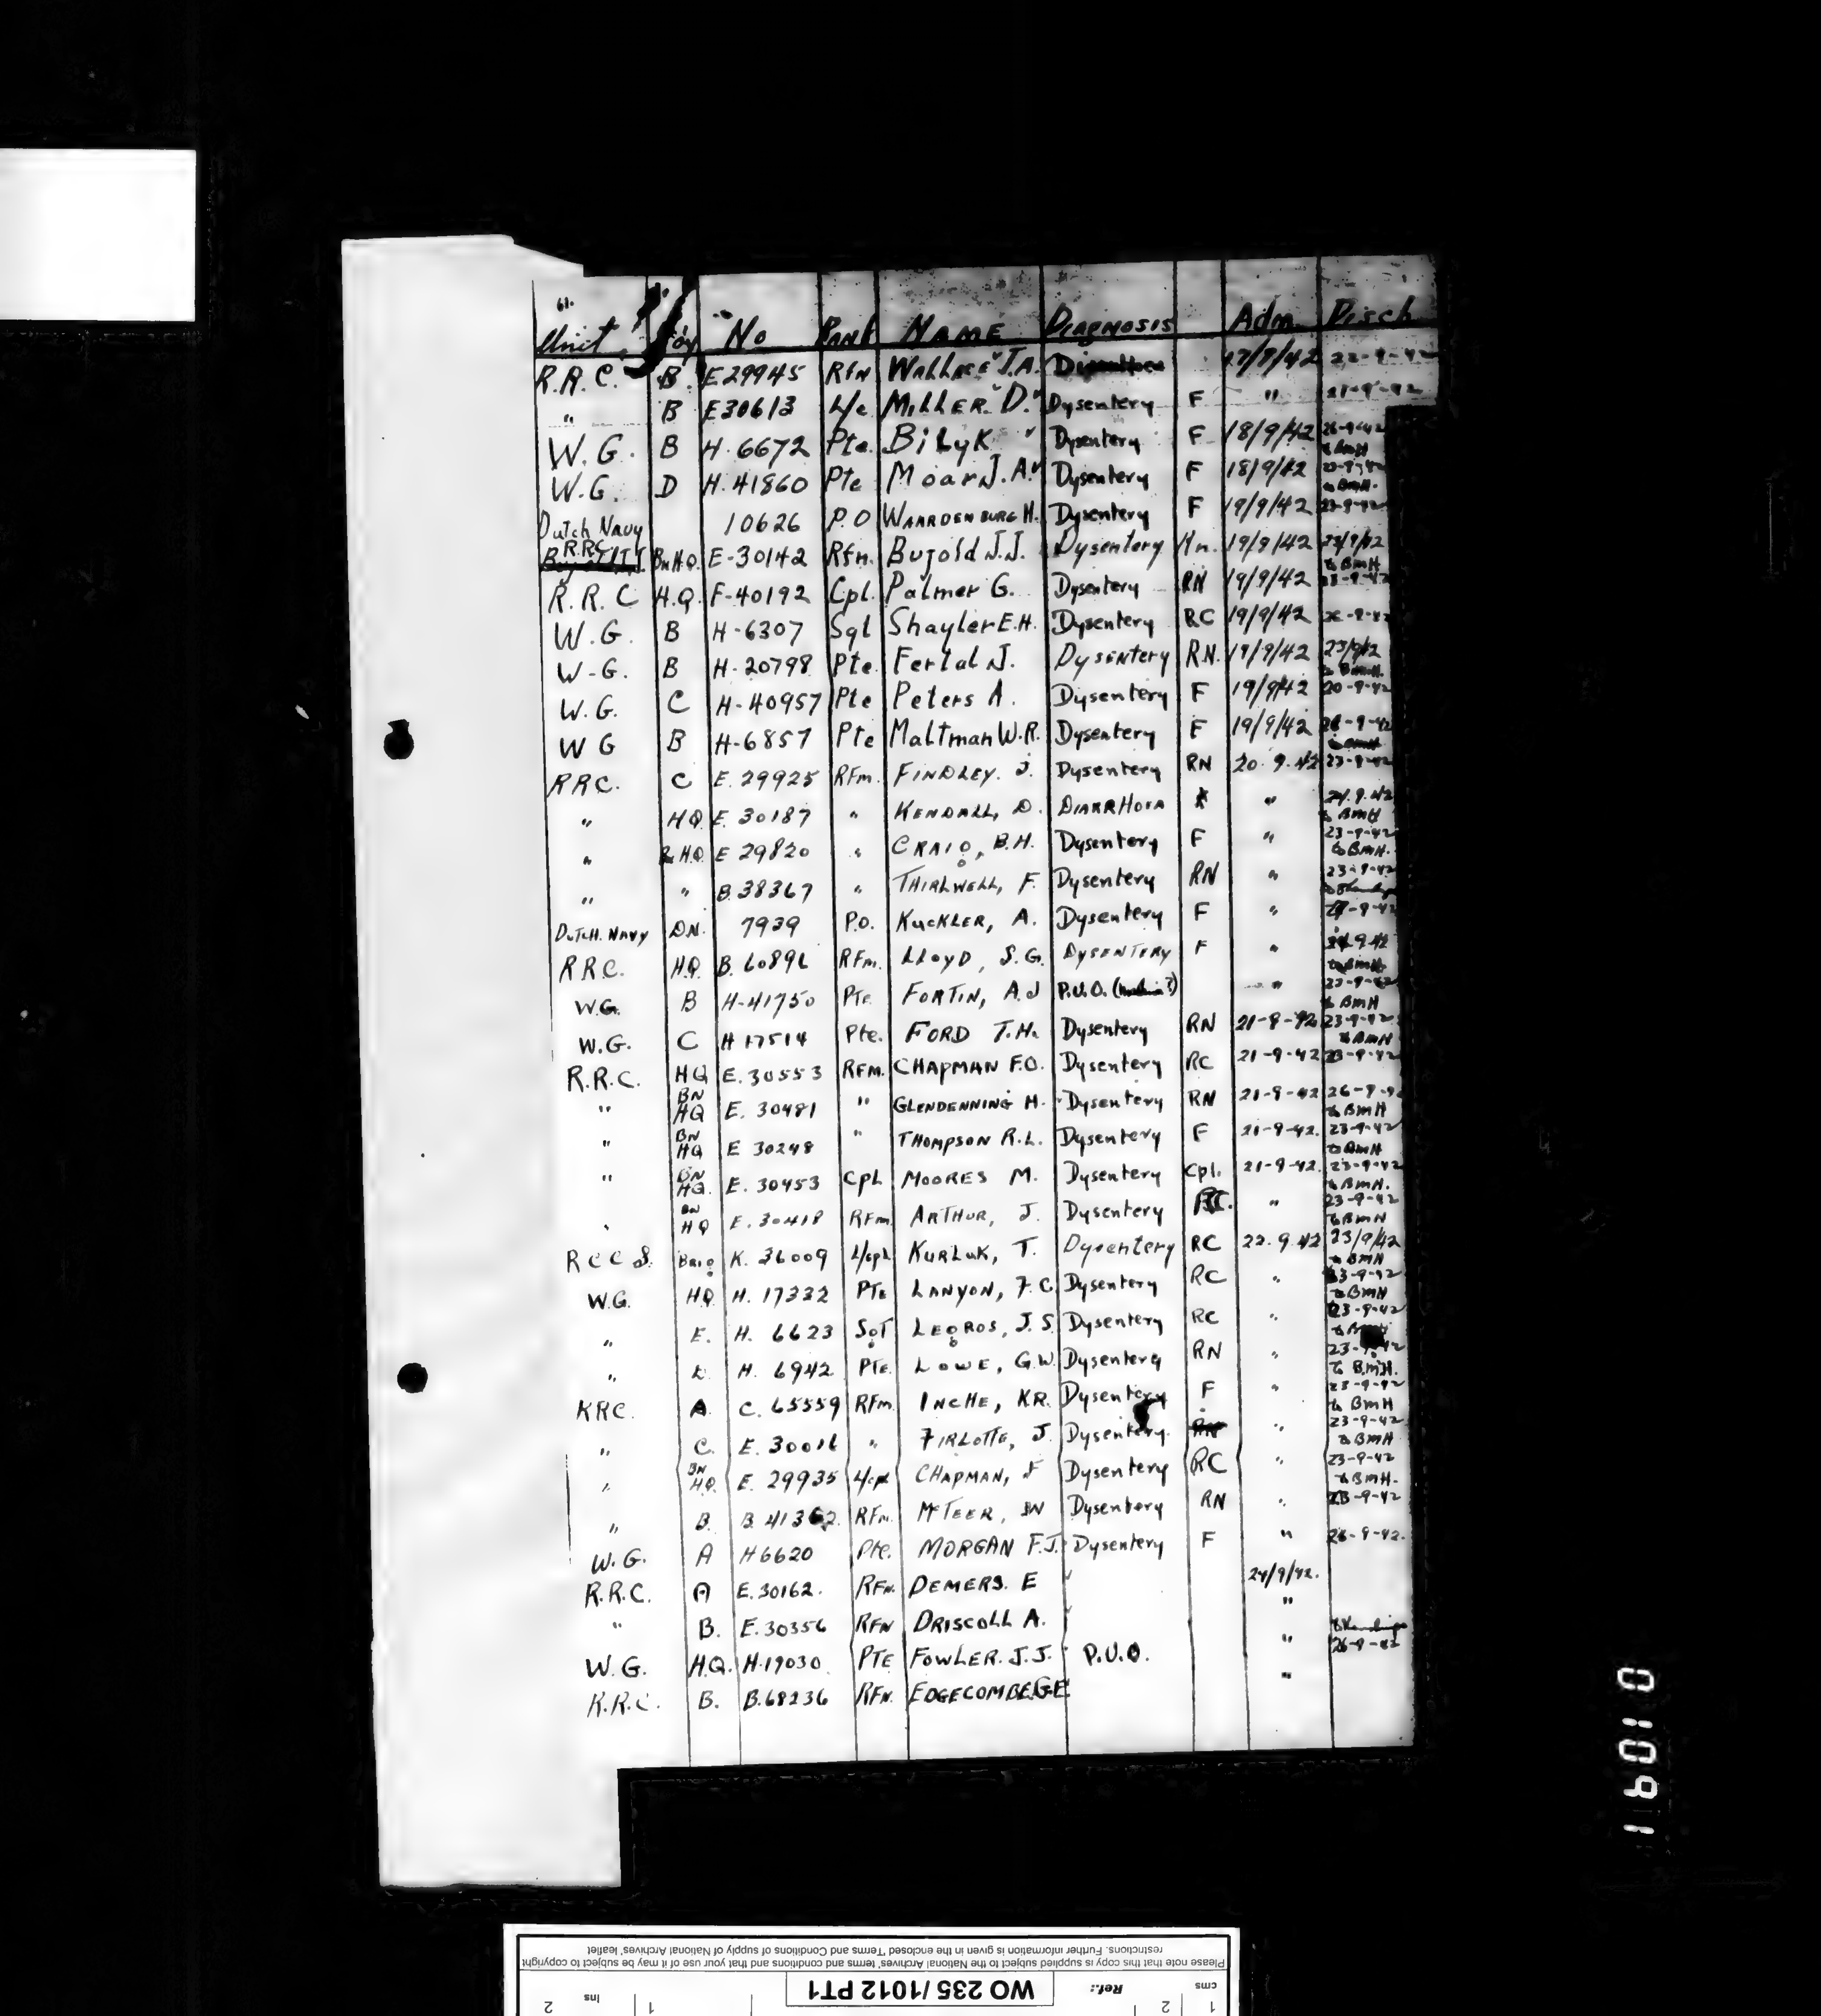 61.
Unit Coy No Rank NAME DIAGNOSIS Adm. Disch
R.R.C. B. E29945 Rfn WALLACE J.A. 17/9/42 22-9-42
" B E30613 L/c MILLER. D. Dysentery F " 21-9-42
W.G. B H.6672 Pte. BiLyK Dysentery F 18/9/42 26-9-42 to BMH
W.G. D H.41860 Pte Moar J.A. Dysentery F 18/9/42 23-9-42 to BMH.
Dutch Navy 10626 P.O WAARDENBURG H. Dysentery F 19/9/42 23-9-42
R.R.C. Bn H.Q. E-30142 Rfn. Bujold J.J. Dysentery Hn. 19/9/42 23/9/42 to BMH
R.R.C H.Q. F-40192 Cpl. Palmer G. Dysentery RN 19/9/42 23-9-42
W.G. B H-6307 Sgt Shayler E.H. Dysentery RC 19/9/42 26-9-42
W-G. B H-20798 Pte. Fertal J. Dysentery R.N. 19/9/42 23/9/42 to BMH.
W.G. C H-40957 Pte Peters A. Dysentery F 19/9/42 20-9-42
W G B H-6857 Pte Maltman W.R. Dysentery F 19/9/42 26-9-42
RRC. C E.29925 RFm. FINDLEY. J. Dysentery RN 20.9.42 23-9-42
" HQ E.30187 " KENDALL, D. DIARRHOEA " 24.9.42 to BMH
" Bn H.Q. E 29820 " CRAIG, B.H. Dysentery F " 23-9-42 to BMH.
" " B.38367 " THIRLWELL, F. Dysentery RN " 23-9-42
DUTCH. NAVY D.N. 7939 P.O. KUCKLER, A. Dysentery F " 27-9-42
RRC. H.Q. B.60896 RFm. LLOYD, S.G. DYSENTERY F " 24.9.42 to BMH
W.G. B H-41750 Pte FORTIN, A.J P.U.O. " 23-9-42 to BMH
W.G. C H 17514 Pte. FORD T.H. Dysentery RN 21-9-42 23-9-42 to BMH
R.R.C. HQ E.30553 RFM. CHAPMAN F.O. Dysentery RC 21-9-42 23-9-42
" BN HQ E. 30481 " GLENDENNING H. Dysentery RN 21-9-42 26-9-42 to BMH
" BN HQ E 30248 " THOMPSON R.L. Dysentery F 21-9-42. 23-9-42 to BMH
" BN HQ. E. 30453 Cpl MOORES M. Dysentery Cpl. 21-9-42. 23-9-42 to BMH.
" BN HQ E. 30418 RFm. ARTHUR, J. Dysentery RC. " 23-9-42 to BMH
R C C S. BRIG K. 36009 L/cpl KURLUK, T. Dysentery RC 22.9.42 23/9/42 to BMH
W.G. H.Q. H. 17332 PTE LANYON, F.C Dysentery RC " 23-9-42 to BMH
" E. H. 6623 SGT LEGROS, J.S. Dysentery RC " 23-9-42 to BMH
" D. H. 6942 PTE. LOWE, G.W. Dysentery RN " 23-9-42 to BMH.
RRC. A. C. 65559 RFm. INCHE, KR. Dysentery F " 23-9-42 to BMH
" C. E. 30016 " FIRLOTTE, J. Dysentery. " 23-9-42 to BMH
" BN H.Q. E. 29935 L/cpl CHAPMAN, F Dysentery RC " 23-9-42 to BMH.
" B. B 41362 RFm. McTEER, JW Dysentery RN " 23-9-42
W.G. A H6620 Pte. MORGAN F.J. Dysentery F " 26-9-42.
R.R.C. A E.30162. RFN. DEMERS. E 24/9/42.
" B. E.30356 RFN DRISCOLL A. "
W.G. H.Q. H.19030. PTE FOWLER. J.J. P.U.O. " 26-9-42
R.R.C. B. B.68236 RFN. EDGECOMBE G.E. "
16010
Please note that this copy is supplied subject to the National Archives' terms and conditions and that your use of it may be subject to copyright
restrictions. Further information is given in the enclosed 'Terms and Conditions of supply of National Archives' leaflet
cms 1 2 Ref.: WO 235/1012 PT1
1 ins 2